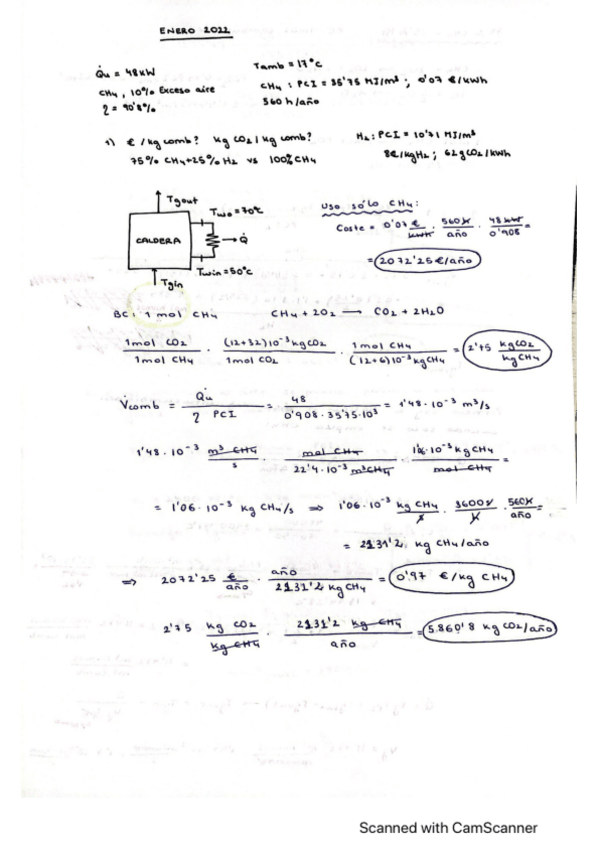 ENERO 2022
Q̇u = 48kW
CH4, 10% Exceso aire
η = 90'8%
Tamb = 17°C
CH4 : PCI = 35'75 MJ/m³ ; 0'07 €/kWh
560 h/año
1) €/kg comb? kg CO2/kg comb?
75% CH4+25% H2 vs 100% CH4
H2: PCI = 10'71 MJ/m³
8€/kgH2 ; 62gCO2/kWh
Tgout
Two = 70°C
CALDERA
Q̇
Twin = 50°C
Tgin
USO SÓLO CH4:
Coste = 0'07 €/kWh · 560 h/año · 48 kW/0'908 =
= 2072'25 €/año
BC: 1 mol CH4 CH4 + 2O2 → CO2 + 2H2O
1mol CO2/1mol CH4 · (12+32)10⁻³ kgCO2/1mol CO2 · 1mol CH4/(12+6)10⁻³ kgCH4 = 2'75 kgCO2/kgCH4
V̇comb = Q̇u/η PCI = 48/0'908·35'75·10³ = 1'48·10⁻³ m³/s
1'48·10⁻³ m³ CH4/s · mol CH4/22'4·10⁻³ m³CH4 · 16·10⁻³ kg CH4/mol CH4 =
= 1'06·10⁻³ kg CH4/s ⇒ 1'06·10⁻³ kg CH4/s · 3600s/h · 560h/año =
= 2131'2 kg CH4/año
⇒ 2072'25 €/año · año/2131'2 kg CH4 = 0'97 €/kg CH4
2'75 kg CO2/kg CH4 · 2131'2 kg CH4/año = 5.860'8 kg CO2/año
Scanned with CamScanner